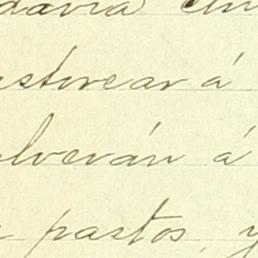 davia
storear á
olverán á
pastos, y